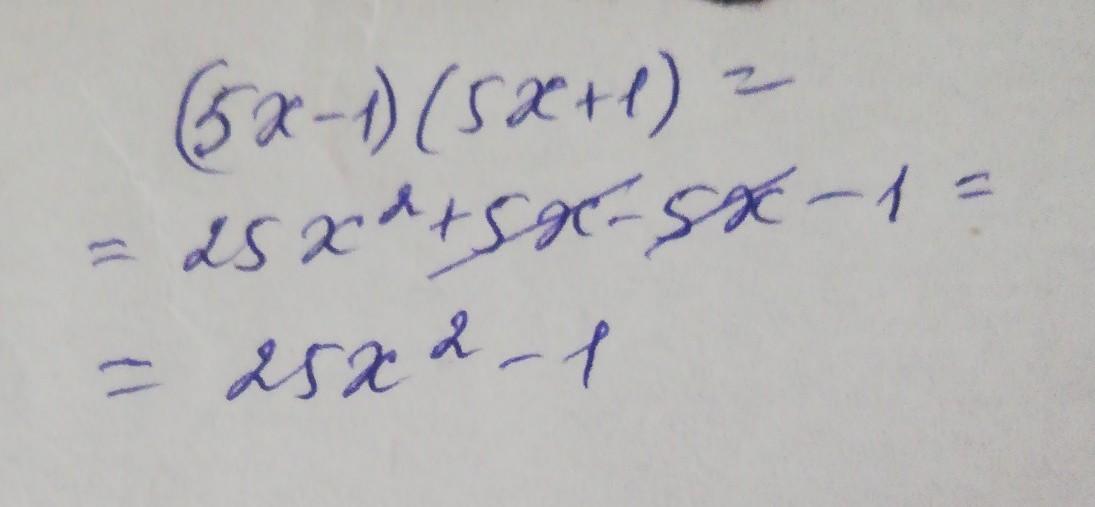 (5x-1)(5x+1) =
= 25x² + 5x - 5x - 1 =
= 25x² - 1